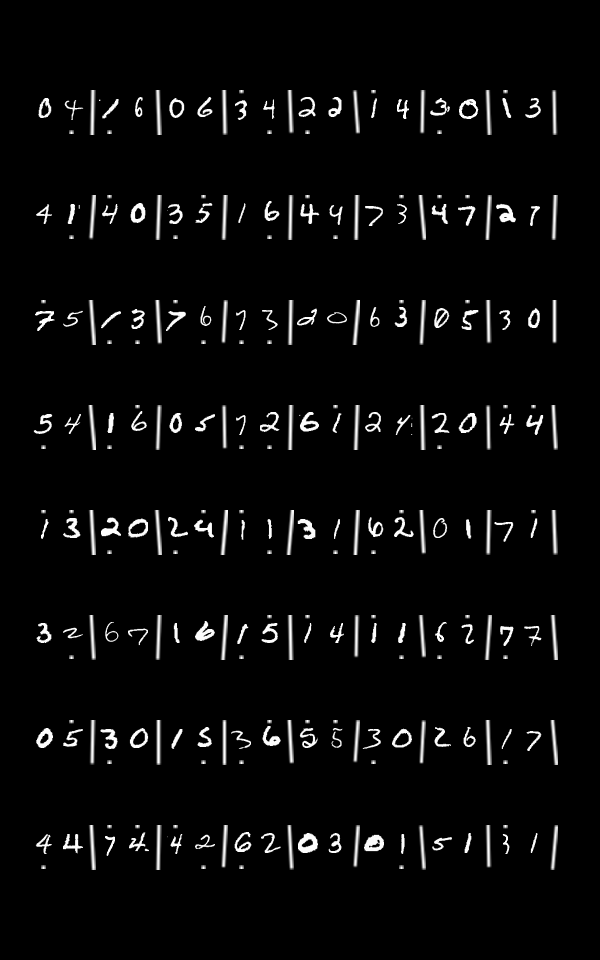 0 4 | 1 6 | 0 6 | 3 4 | 2 2 | 1 4 | 3 0 | 1 3 |
4 1 | 4 0 | 3 5 | 1 6 | 4 4 | 7 3 | 4 7 | 2 7 |
7 5 | 1 3 | 7 6 | 7 3 | 2 0 | 6 3 | 0 5 | 3 0 |
5 4 | 1 6 | 0 5 | 7 2 | 6 1 | 2 4 | 2 0 | 4 4 |
1 3 | 2 0 | 2 4 | 1 1 | 3 1 | 6 2 | 0 1 | 7 1 |
3 2 | 6 7 | 1 6 | 1 5 | 1 4 | 1 1 | 6 2 | 7 7 |
0 5 | 3 0 | 1 5 | 3 6 | 5 5 | 3 0 | 2 6 | 1 7 |
4 4 | 7 4 | 4 2 | 6 2 | 0 3 | 0 1 | 5 1 | 3 1 |